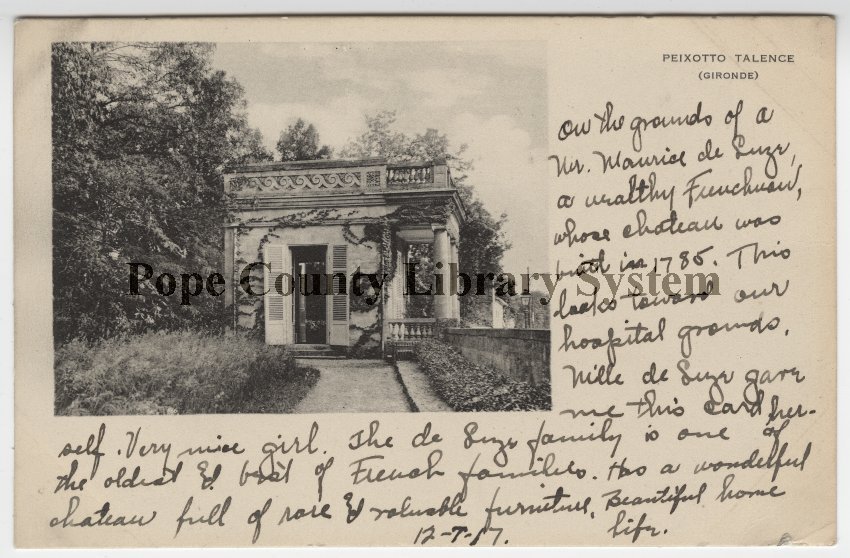 PEIXOTTO TALENCE
(GIRONDE)
On the grounds of a
Mr. Maurice de Luze,
a wealthy Frenchman,
whose chateau was
built in 1785. This
looks toward our
hospital grounds.
Mlle de Luze gave
me this card her-
self. Very nice girl. The de Luze family is one of
the oldest & best of French families. Has a wonderful
chateau full of rare & valuable furniture. Beautiful home
life.
12-7-17.
Pope County Library System